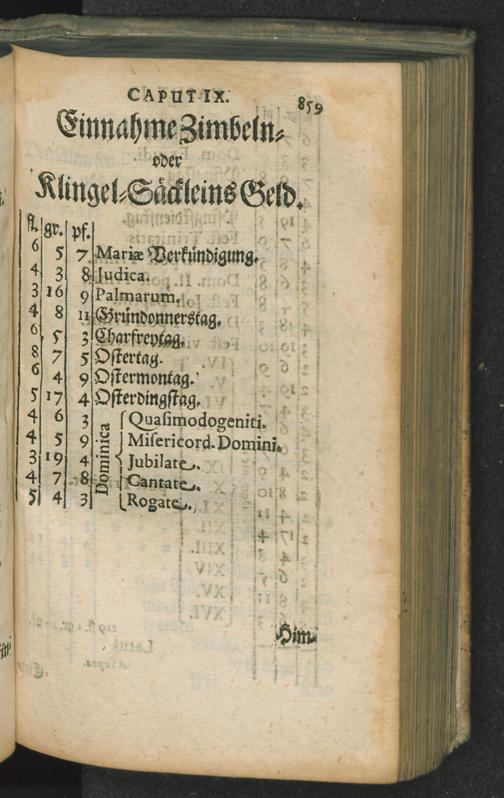 CAPUT IX. 859
Einnahme Zimbeln-
oder
Klingel-Säckleins Geld.
fl. gr. pf.
6 5 7 Mariæ Verkündigung.
4 3 8 Judica.
3 16 9 Palmarum.
4 8 11 Gründonnerstag.
6 5 3 Charfreytag.
8 7 5 Ostertag.
6 4 9 Ostermontag.
5 17 4 Osterdingstag.
4 6 3 Dominica Quasimodogeniti.
4 5 9 Misericord. Domini.
3 19 4 Jubilate.
4 7 8 Cantate.
5 4 3 Rogate.
Him-